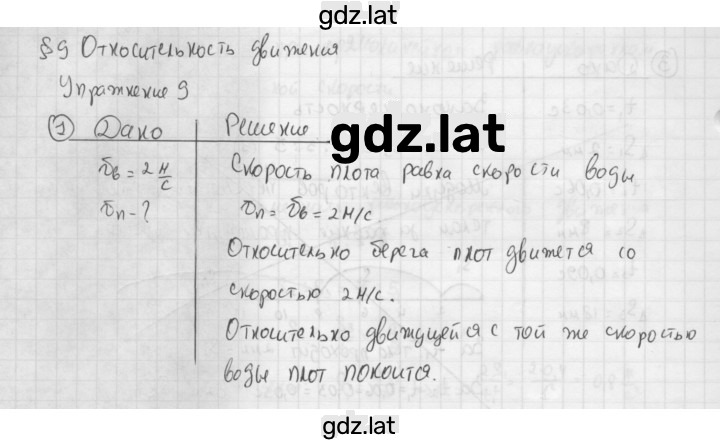 gdz.lat
§9 Относительность движения
Упражнение 9
1 Дано Решение
gdz.lat
υв = 2 н/с Скорость плота равна скорости воды
υп - ? υп = υв = 2 н/с
Относительно берега плот движется со
скоростью 2 н/с.
Относительно движущейся с той же скоростью
воды плот покоится.
gdz.lat